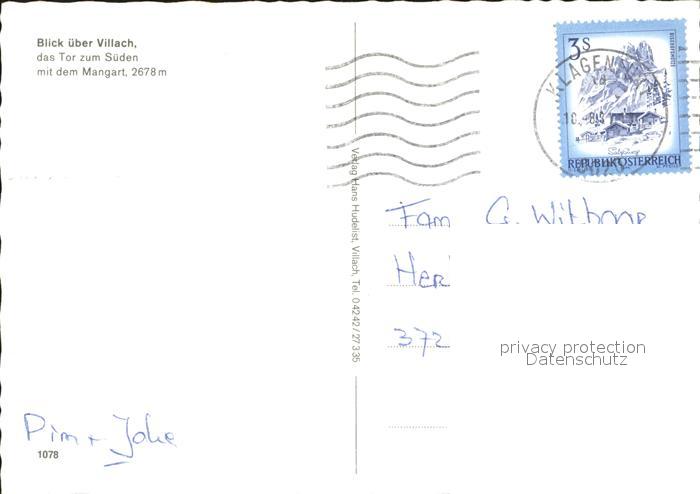 Blick über Villach,
das Tor zum Süden
mit dem Mangart, 2678 m
3S
KLAGENFU
REPUBLIK ÖSTERREICH
Verlag Hans Hudelist, Villach, Tel. 04242/27335
Fam G.
Her
372
privacy protection
Datenschutz
Pim + Joke
1078